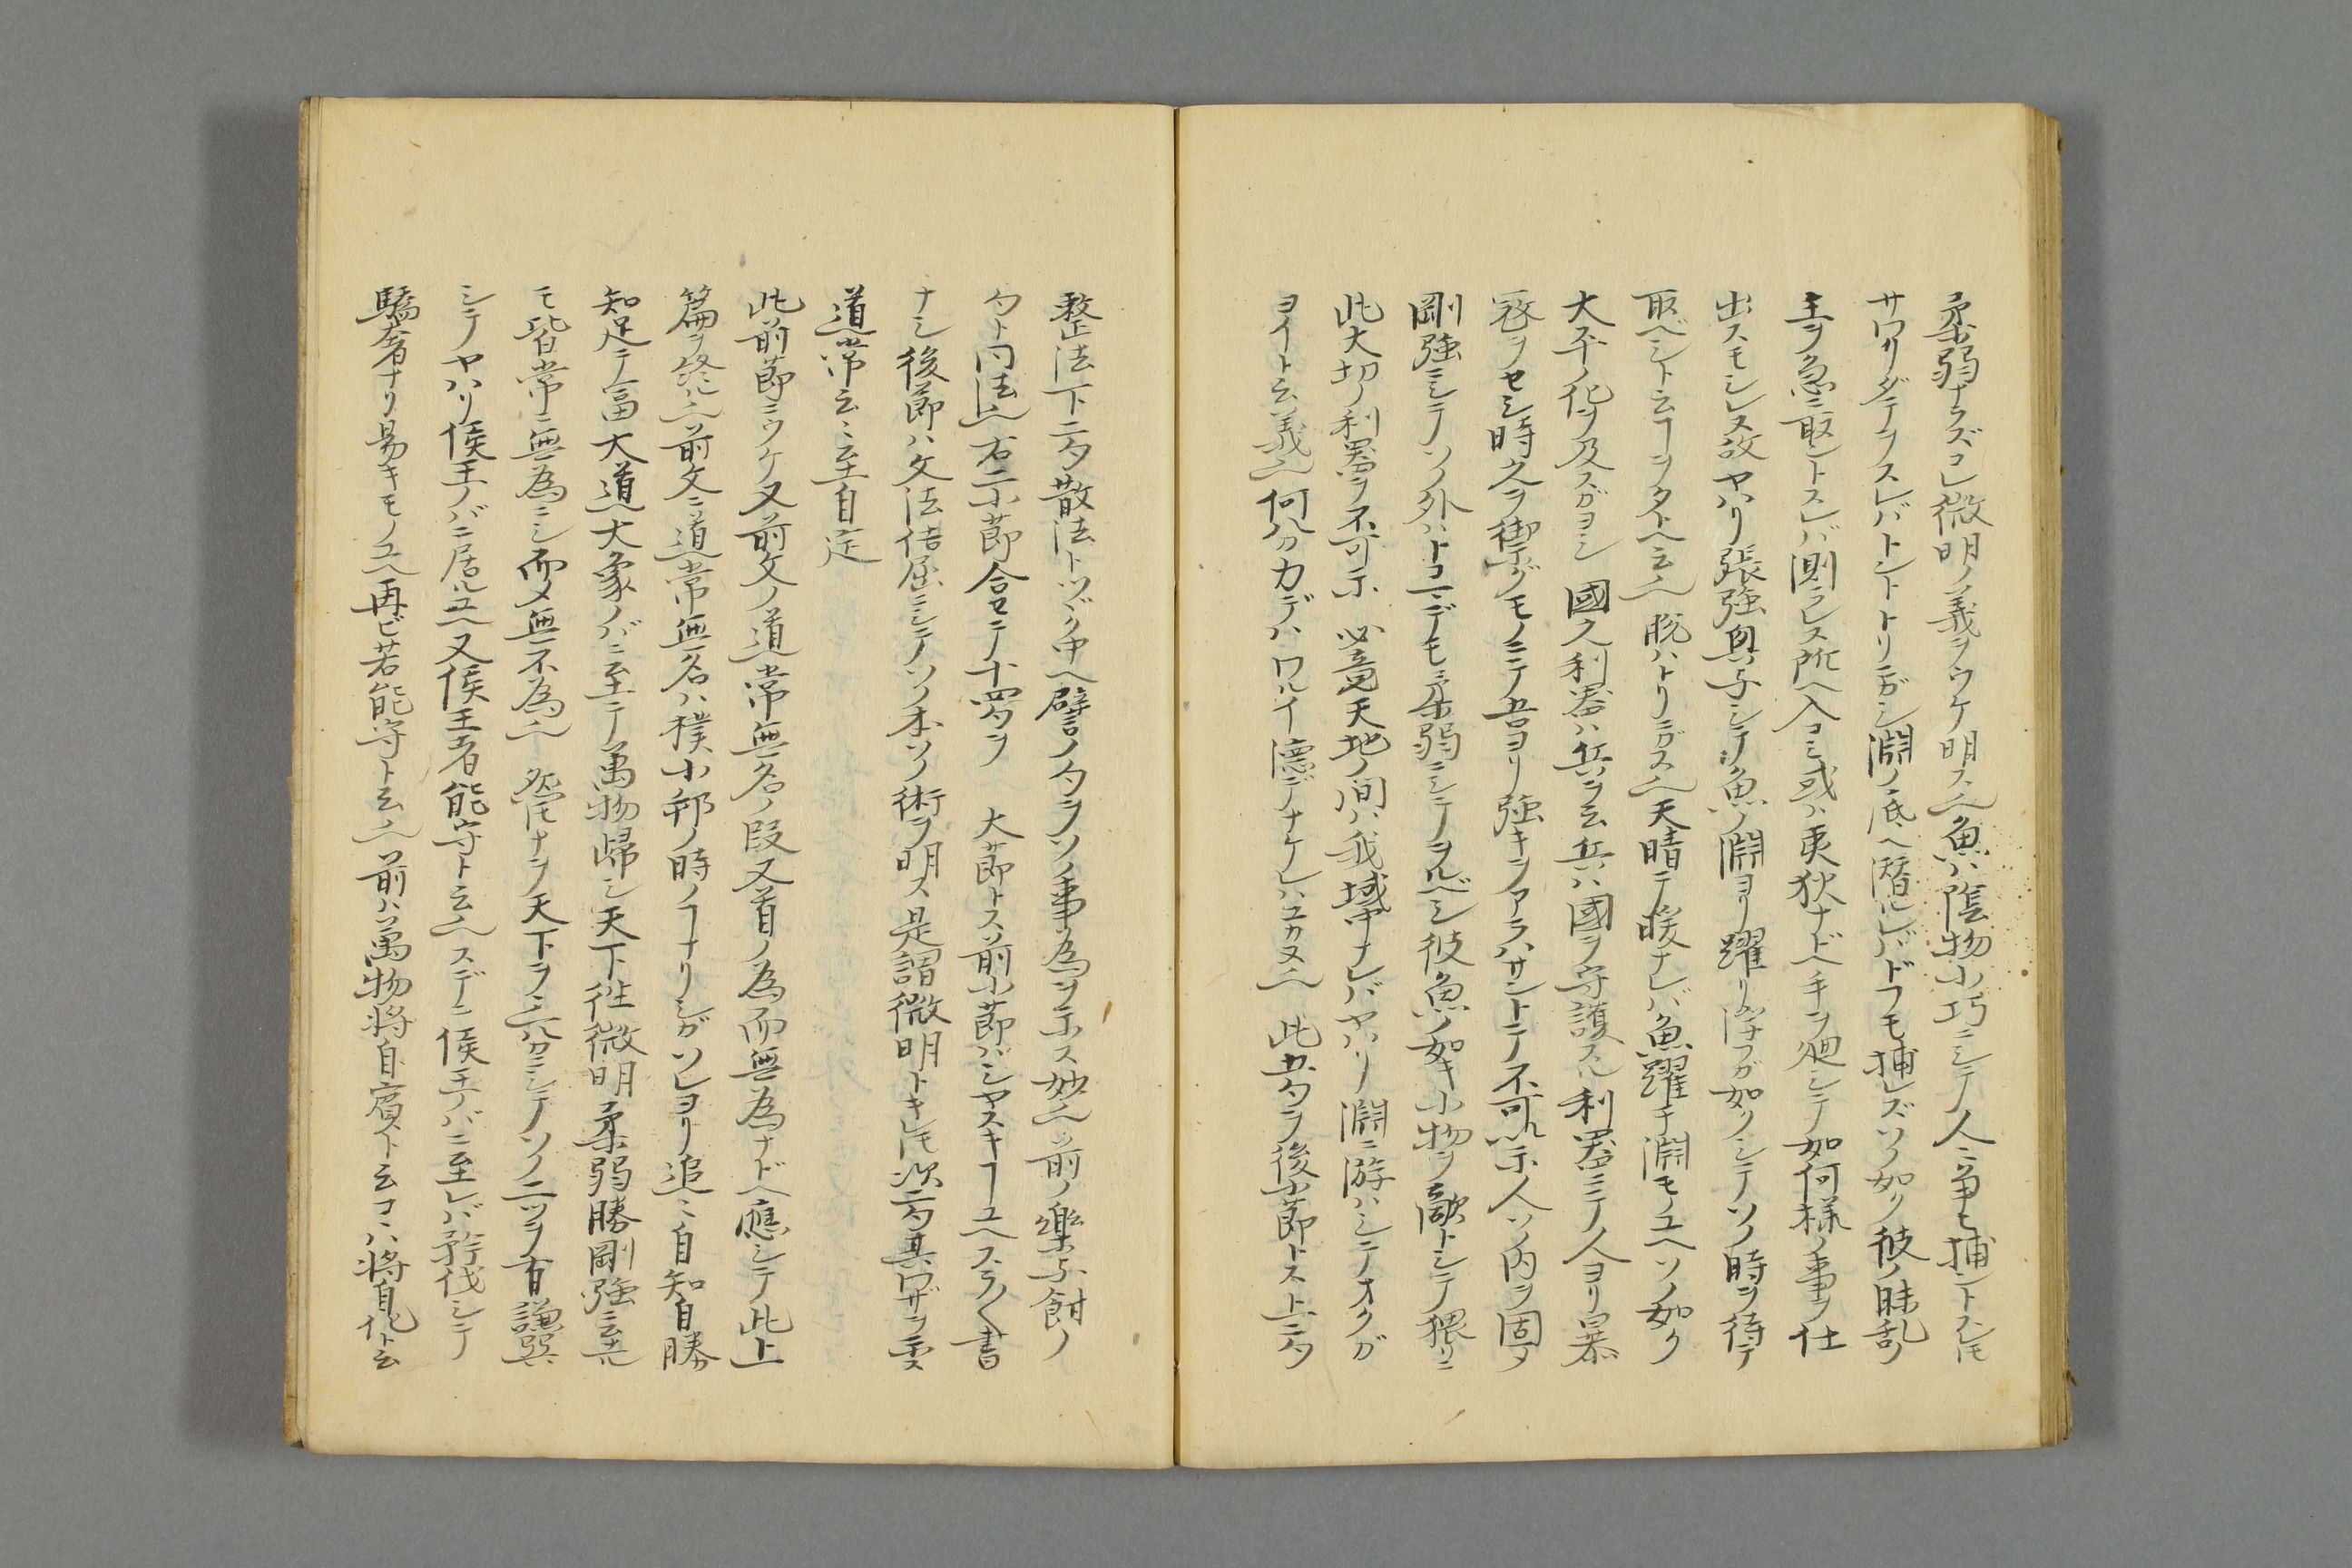 柔弱ナラズコレ微明ノ義ヲウケ明ス也魚ハ陰物小巧ニシテ人ニ争ヒ捕ントスレ𪜈
サワリダテヲスレバトントトリニガシ淵ノ底ヘ潜ルレバドフモ捕レズソノ如ク彼ノ昧乱ノ
主ヲ急ニ取ントスレバ測ラレヌ所ヘ入コミ或ハ夷狄ナドヘ手ヲ廻シテ如何様ノ事ヲ仕
出スモシレヌ故ヤハリ張強與ヲシテ魚ノ淵ヨリ躍リ浮フガ如クシテソノ時ヲ待テ
取ベシト云ヿヲタトヘ云也脱ハトリニガス也天晴テ暖ナレバ魚躍于淵モノユヘソノ如ク
大平ノ化ヲ及スガヨシ國ノ利器ハ兵ヲ云兵ハ國ヲ守護スル利器ニテ人ヨリ暴
寇ヲセシ時之ヲ禦グモノニテ吾ヨリ強キヲアラハサントテ不可以示人ソノ内ヲ固メ
剛強ニシテソノ外ハトコマデモ柔弱ニシテヲルベシ彼魚ノ如キ小物ヲ敵トシテ猥リニ
此大切ノ利器ヲ不可示必竟天地ノ間ハ我域中ナレバヤハリ淵ニ游ハシテオクガ
ヨイト云義也何分力デハワルイ隠デナケレハユカヌ也此五句ヲ後小節トス上二句
整法下二句散法トツヾク中ヘ譬ノ句ヲソノ事為ヲ示ス妙也前ノ樂與餌ノ
句ト同法也右二小節合セテ十四句ヲ大節トス前小節ハシヤスキヿユヘスラ〱書
ナシ後節ハ文法佶屈ニシテソノ本ソノ術ヲ明ス是謂微明トキレ𪜈次二句其ワザヲ云ス
道常云〻至自定
此前節ニウケ又前文ノ道常無名ノ段又首ノ為而無為ナドヘ應シテ此上
篇ヲ終ル也前文ニ道常無名ハ樸小邦ノ時ノヿナリシガソレヨリ追〻自知自勝
知足テ富大道大象ノバニ至テ萬物歸シ天下往微明柔弱勝剛強ニ至ル
モ皆常ニ無為ニシ而〆無不為也然𪜈ナヲ天下ヲ三分ニシテソノ二ツヲ有謙巽
シテヤハリ侯王ノバニ居ルユヘ又侯王若能守ト云也スデニ侯王ノバニ至レバ矜伐シテ
驕奢ナリ易キモノユヘ再ビ若能守ト云也前ハ萬物将自賓ト云コヽハ将自化ト云